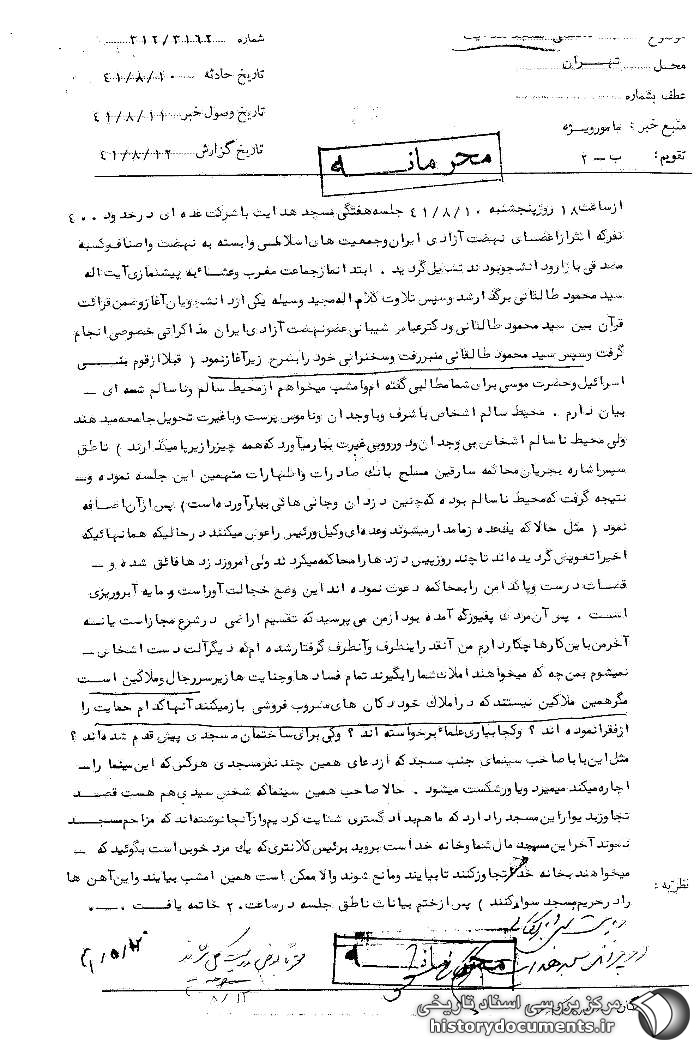 شماره ۳۱۲/۳۱۶۲
محل تهران
تاریخ حادثه ۴۱/۸/۱۰
عطف بشماره
تاریخ وصول خبر ۴۱/۸/۱۱
منبع خبر: مامورویژه
تاریخ گزارش ۴۱/۸/۱۲
تقویم: ب – ۲
محرمانه
ازساعت ۱۸ روزپنجشنبه ۴۱/۸/۱۰ جلسه هفتگی مسجد هدایت باشرکت عده ای درحدود ۴۰۰
نفرکه اکثرازاعضای نهضت آزادی ایران وجمعیت های اسلامی وابسته به نهضت واصناف وکسبه
مصدقی بازارود انشجوبودند تشکیل گردید . ابتدا نمازجماعت مغرب وعشاء به پیشنمازی آیت اله
سید محمود طالقانی برگذارشد وسپس تلاوت کلام اله مجید وسیله یکی ازد انشجویان آغازوضمن قرائت
قرآن بین سید محمود طالقانی ودکترعباس شیبانی عضونهضت آزادی ایران مذاکراتی خصوصی انجام
گرفت وسپس سید محمود طالقانی منبررفت وسخنرانی خود رابشرح زیرآغازنمود ( قبلا ازقوم بنی
اسرائیل وحضرت موسی برای شمامطالبی گفته ام وامشب میخواهم ازمحیط سالم وناسالم شمه ای –
بیان دارم . محیط سالم اشخاص باشرف وباوجدان وناموس پرست وباغیرت تحویل جامعه میدهند
ولی محیط ناسالم اشخاص بی وجدان ودوروبی غیرت ببارمیآورد که همه چیزرازیرپامیگذارند ) ناطق
سپس اشاره بجریان محاکمه سارقین مسلح بانک صادرات واظهارات متهمین این جلسه نموده و
نتیجه گرفت که محیط ناسالم بوده که چنین دزدان وجانی هائی ببارآورده است) پس ازآن اضافه
نمود ( مثل حالا که یک عده زمامدارمیشوند وعده ای وکیل ورئیس راعوض میکنند درحالیکه همانهائیکه
اخیراتعویض گردیده اند تاچند روزپیش دزدهارامحاکمه میکردند ولی امروزدزدها فائق شده و –
قضات درست وپاکدامن رابمحاکمه دعوت نموده اند این وضع خجالت آوراست ومایه آبروریزی
است . پس آن مردی که آمده بود ازمن می پرسید که تقسیم اراضی درشرع مجازاست یانه
آخرمن باین کارها چکاردارم من آنقدرازاینطرف وآنطرف گرفتارشده ام که دیگرآلت دست اشخاص –
نمیشوم بمن چه که میخواهند املاک شمارابگیرند تمام فسادها وجنایت هازیرسررجال وملاکین است
مگرهمین ملاکین نیستند که دراملاک خود دکان های مشروب فروشی بازمیکنند آنهاکدام حمایت را
ازفقرانموده اند ؟ وکجابیاری علماء برخواسته اند ؟ وکی برای ساختمان مسجدی پیش قدم شده اند ؟
مثل این باباصاحب سینمای جنب مسجد که ازدعای همین چند نفرمسجدی هرکس که این سینما را –
اجاره میکند میمیرد ویاورشکست میشود . حالاصاحب همین سینماکه شخص سیدی هم هست قصد
تجاوزبدیواراین مسجد رادارد که ماهم بداد گستری شکایت کردیم وازآنجانوشته اند که مزاحم مسجد
نشوند آخراین مسجد مال شماوخانه خداست بروید برئیس کلانتری که یک مرد خوبی است بگوئید که –
میخواهند بخانه خدا تجاوزکنند تابیایند ومانع شوند والاممکن است همین امشب بیایند واین آهن ها
رادرحریم مسجد سوارکنند ) پس ازختم بیانات ناطق جلسه درساعت ۲۰ خاتمه یافت .
نظریه :
محرمانه
مرکز بررسی اسناد تاریخی
historydocuments.ir